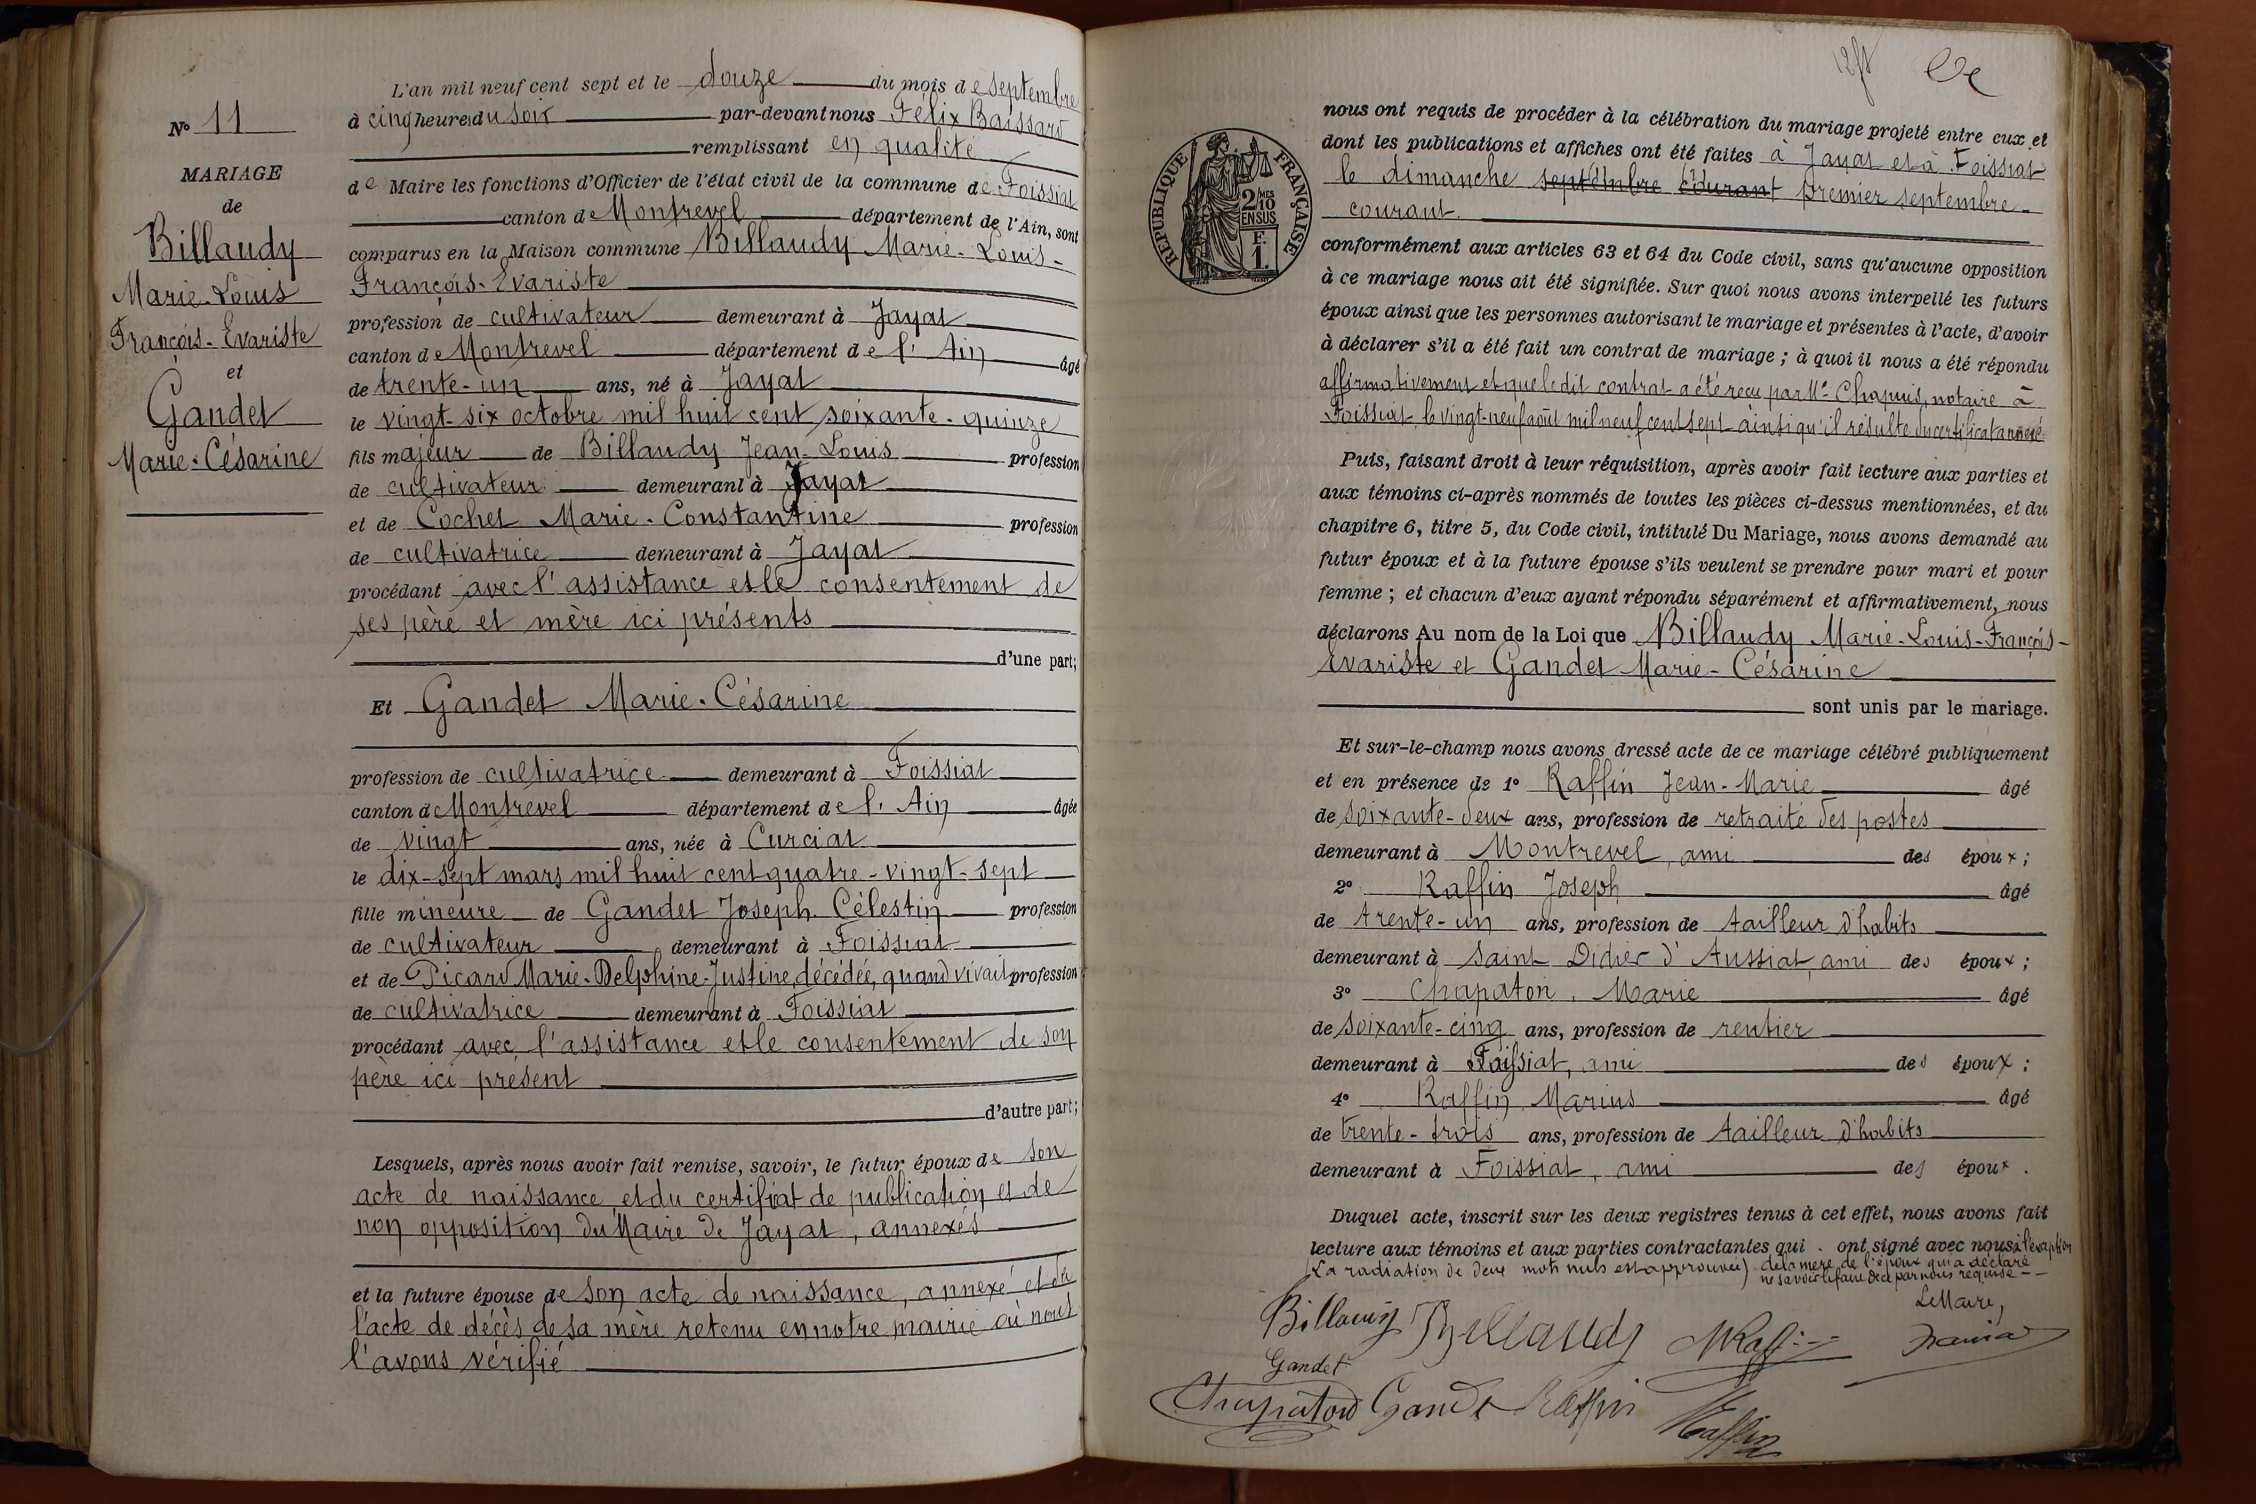 N° 11
MARIAGE
de
Billaudy
Marie-Louis
François-Evariste
et
Gandet
Marie-Césarine
L'an mil neuf cent sept et le douze du mois de septembre
à cinq heures du soir par-devant nous Félix Baissard
remplissant en qualité
de Maire les fonctions d'Officier de l'état civil de la commune de Foissiat
canton de Montrevel département de l'Ain, sont
comparus en la Maison commune Billaudy Marie-Louis-
François-Evariste
profession de cultivateur demeurant à Jayat
canton de Montrevel département de l'Ain âgé
de trente-un ans, né à Jayat
le vingt-six octobre mil huit cent soixante-quinze
fils majeur de Billaudy Jean-Louis profession
de cultivateur demeurant à Jayat
et de Cochet Marie-Constantine profession
de cultivatrice demeurant à Jayat
procédant avec l'assistance et le consentement de
ses père et mère ici présents
d'une part;
Et Gandet Marie-Césarine
profession de cultivatrice demeurant à Foissiat
canton de Montrevel département de l'Ain âgée
de vingt ans, née à Curciat
le dix-sept mars mil huit cent quatre-vingt-sept
fille mineure de Gandet Joseph Célestin profession
de cultivateur demeurant à Foissiat
et de Picard Marie-Delphine-Justine, décédée, quand vivait profession
de cultivatrice demeurant à Foissiat
procédant avec l'assistance et le consentement de son
père ici présent
d'autre part;
Lesquels, après nous avoir fait remise, savoir, le futur époux de son
acte de naissance et du certificat de publication et de
non opposition du Maire de Jayat, annexés
et la future épouse de son acte de naissance, annexé et de
l'acte de décès de sa mère retenu en notre mairie où nous
l'avons vérifié
RÉPUBLIQUE FRANÇAISE
2 MES
10
EN SUS
F.
1.
nous ont requis de procéder à la célébration du mariage projeté entre eux et
dont les publications et affiches ont été faites à Jayat et à Foissiat
le dimanche septembre courant premier septembre
courant.
conformément aux articles 63 et 64 du Code civil, sans qu'aucune opposition
à ce mariage nous ait été signifiée. Sur quoi nous avons interpellé les futurs
époux ainsi que les personnes autorisant le mariage et présentes à l'acte, d'avoir
à déclarer s'il a été fait un contrat de mariage ; à quoi il nous a été répondu
affirmativement et que ledit contrat a été reçu par Me Chapuis, notaire à
Foissiat, le vingt-neuf août mil neuf cent sept ainsi qu'il résulte du certificat annexé
Puis, faisant droit à leur réquisition, après avoir fait lecture aux parties et
aux témoins ci-après nommés de toutes les pièces ci-dessus mentionnées, et du
chapitre 6, titre 5, du Code civil, intitulé Du Mariage, nous avons demandé au
futur époux et à la future épouse s'ils veulent se prendre pour mari et pour
femme ; et chacun d'eux ayant répondu séparément et affirmativement, nous
déclarons Au nom de la Loi que Billaudy Marie-Louis-François-
Evariste et Gandet Marie-Césarine
sont unis par le mariage.
Et sur-le-champ nous avons dressé acte de ce mariage célébré publiquement
et en présence de 1° Raffin Jean-Marie âgé
de soixante-deux ans, profession de retraité des postes
demeurant à Montrevel, ami des époux ;
2° Raffin Joseph âgé
de trente-un ans, profession de tailleur d'habits
demeurant à Saint Didier d'Aussiat, ami des époux ;
3° Chapaton, Marie âgé
de soixante-cinq ans, profession de rentier
demeurant à Foissiat, ami des époux ;
4° Raffin, Marius âgé
de trente-trois ans, profession de tailleur d'habits
demeurant à Foissiat, ami des époux.
Duquel acte, inscrit sur les deux registres tenus à cet effet, nous avons fait
lecture aux témoins et aux parties contractantes qui ont signé avec nous à l'exception
(La radiation de deux mots nuls est approuvée) de la mère de l'époux qui a déclaré
ne savoir le faire de ce par nous requise
Le Maire,
Billaudy Billaudy
Gandet
Chapaton Gandet Raffin
Raffin